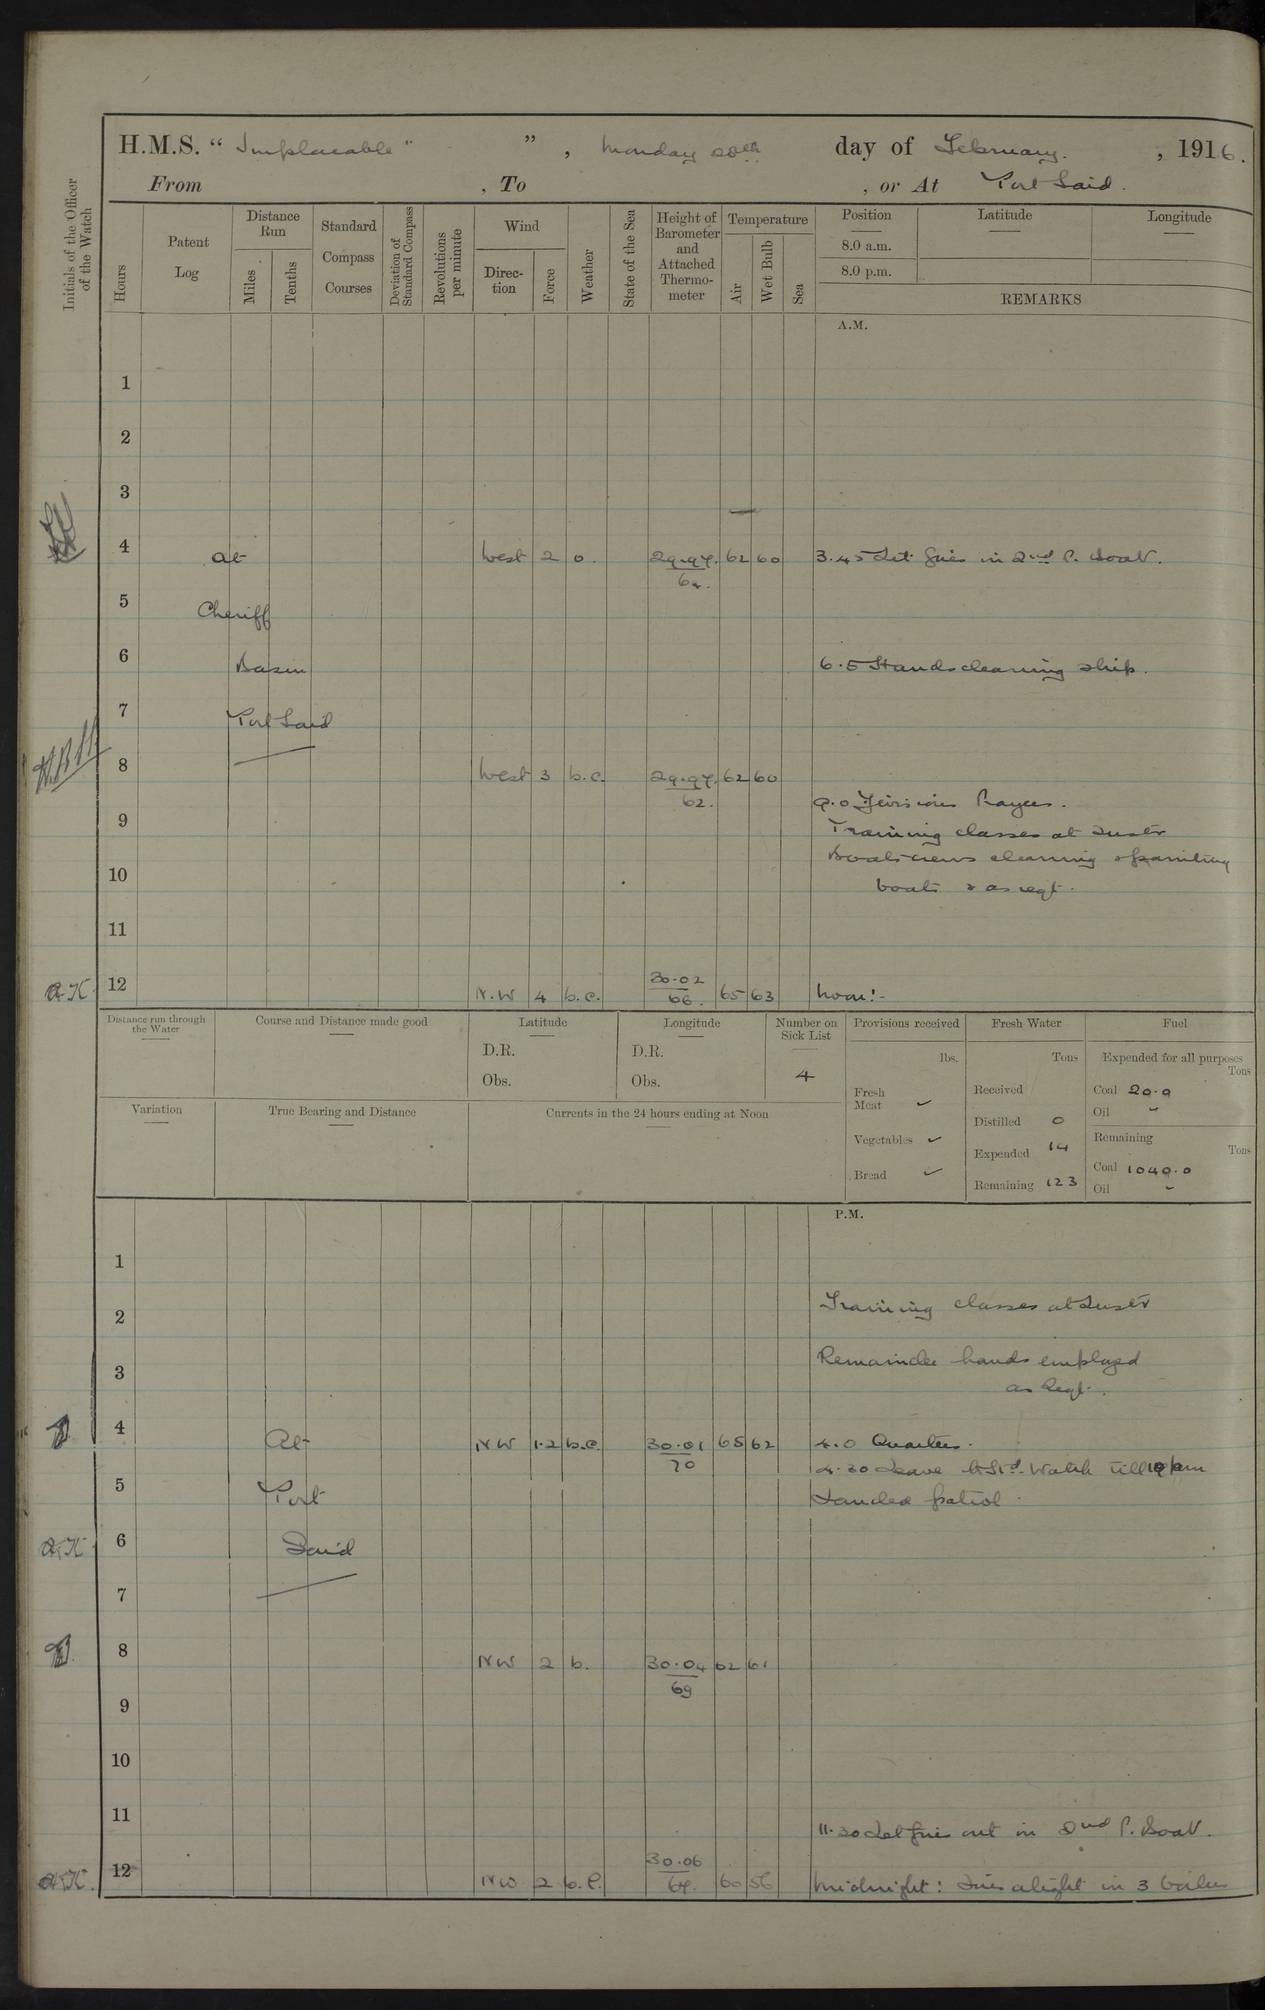 H.M.S. "Implacable" ", Monday 28th day of February. , 1916.
From , To , or At Port Said.
Initials of the Officer of the Watch
Hours
Patent Log
Distance Run
Miles
Tenths
Standard Compass Courses
Deviation of Standard Compass
Revolutions per minute
Wind
Direction
Force
Weather
State of the Sea
Height of Barometer and Attached Thermometer
Temperature
Air
Wet Bulb
Sea
Position
8.0 a.m.
8.0 p.m.
Latitude
Longitude
REMARKS
A.M.
1
2
3
4 At West 2 o. 29.97. 62 60 3.45 Lit fires in 2nd P. Boat.
64.
5 Cheriff
6 Basin 6.5 Hands cleaning ship.
7 Port Said
8 West 3 b.c. 29.97. 62 60
62.
9.0 Divisions Prayers.
9 Training classes at Instr
Boats crews cleaning & painting
10 boats & as reqt.
11
A.K. 12 N.W 4 b.c. 30.02 65 63 Noon:-
66.
Distance run through the Water
Course and Distance made good
Latitude
D.R.
Obs.
Longitude
D.R.
Obs.
Number on Sick List
4
Provisions received
lbs.
Fresh Meat ✓
Vegetables ✓
Bread ✓
Fresh Water
Tons
Received
Distilled 0
Expended 14
Remaining 123
Fuel
Expended for all purposes
Tons
Coal 20.0
Oil -
Remaining
Tons
Coal 1040.0
Oil -
Variation
True Bearing and Distance
Currents in the 24 hours ending at Noon
P.M.
1
2 Training classes at Instr
3 Remainder hands employed
as Reqt.
4 At NW 1.2 b.c. 30.01 65 62 4.0 Quarters.
70
4.30 Leave to Watch till
5 Port Landed patrol.
A.K. 6 Said
7
8 NW 2 b. 30.04 62 61
69
9
10
11 11.30 Let fires out in 2nd P. Boat.
A.K. 12 NW 2 b.c. 30.06 60 56 Midnight: Fires alight in 3 boilers
64.